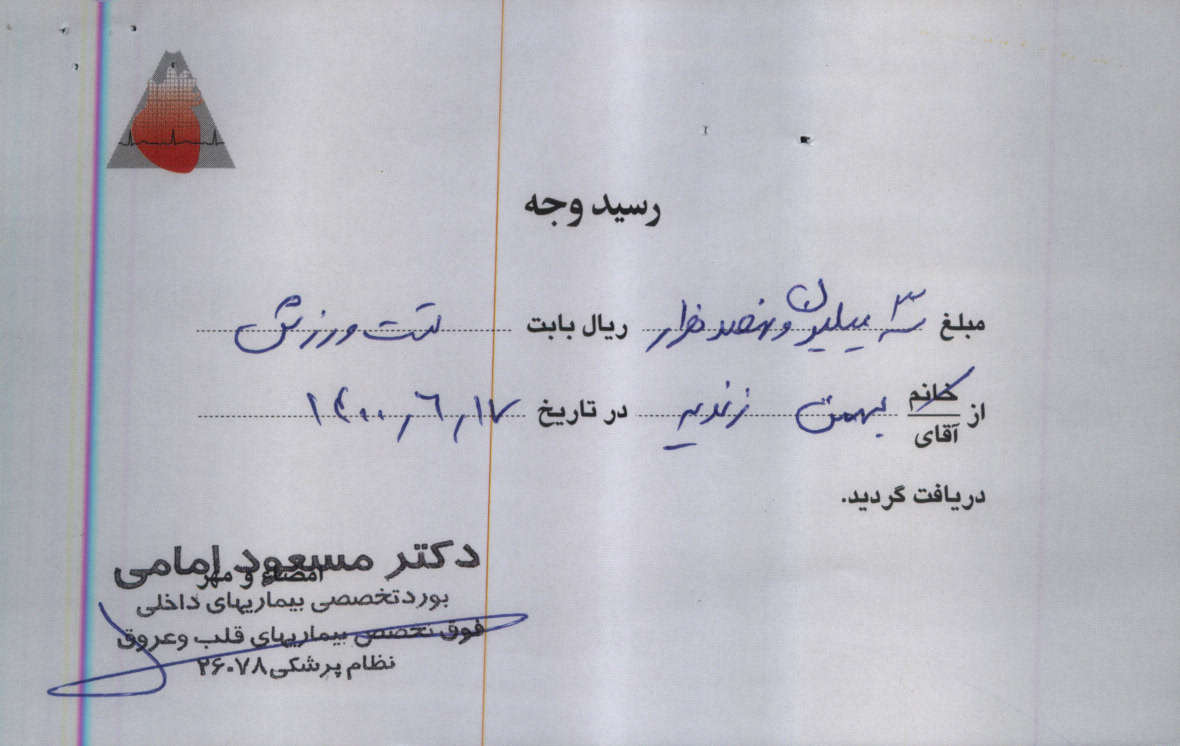 رسید وجه
مبلغ ۳ میلیون و نهصد هزار ریال بابت تست ورزش
از خانم آقای بهمن زندیه در تاریخ ۱۴۰۰٫۶٫۱۷
دریافت گردید.
دکتر مسعود امامی
امضاء و مهر
بورد تخصصی بیماریهای داخلی
فوق تخصص بیماریهای قلب وعروق
نظام پزشکی ۲۶۰۷۸